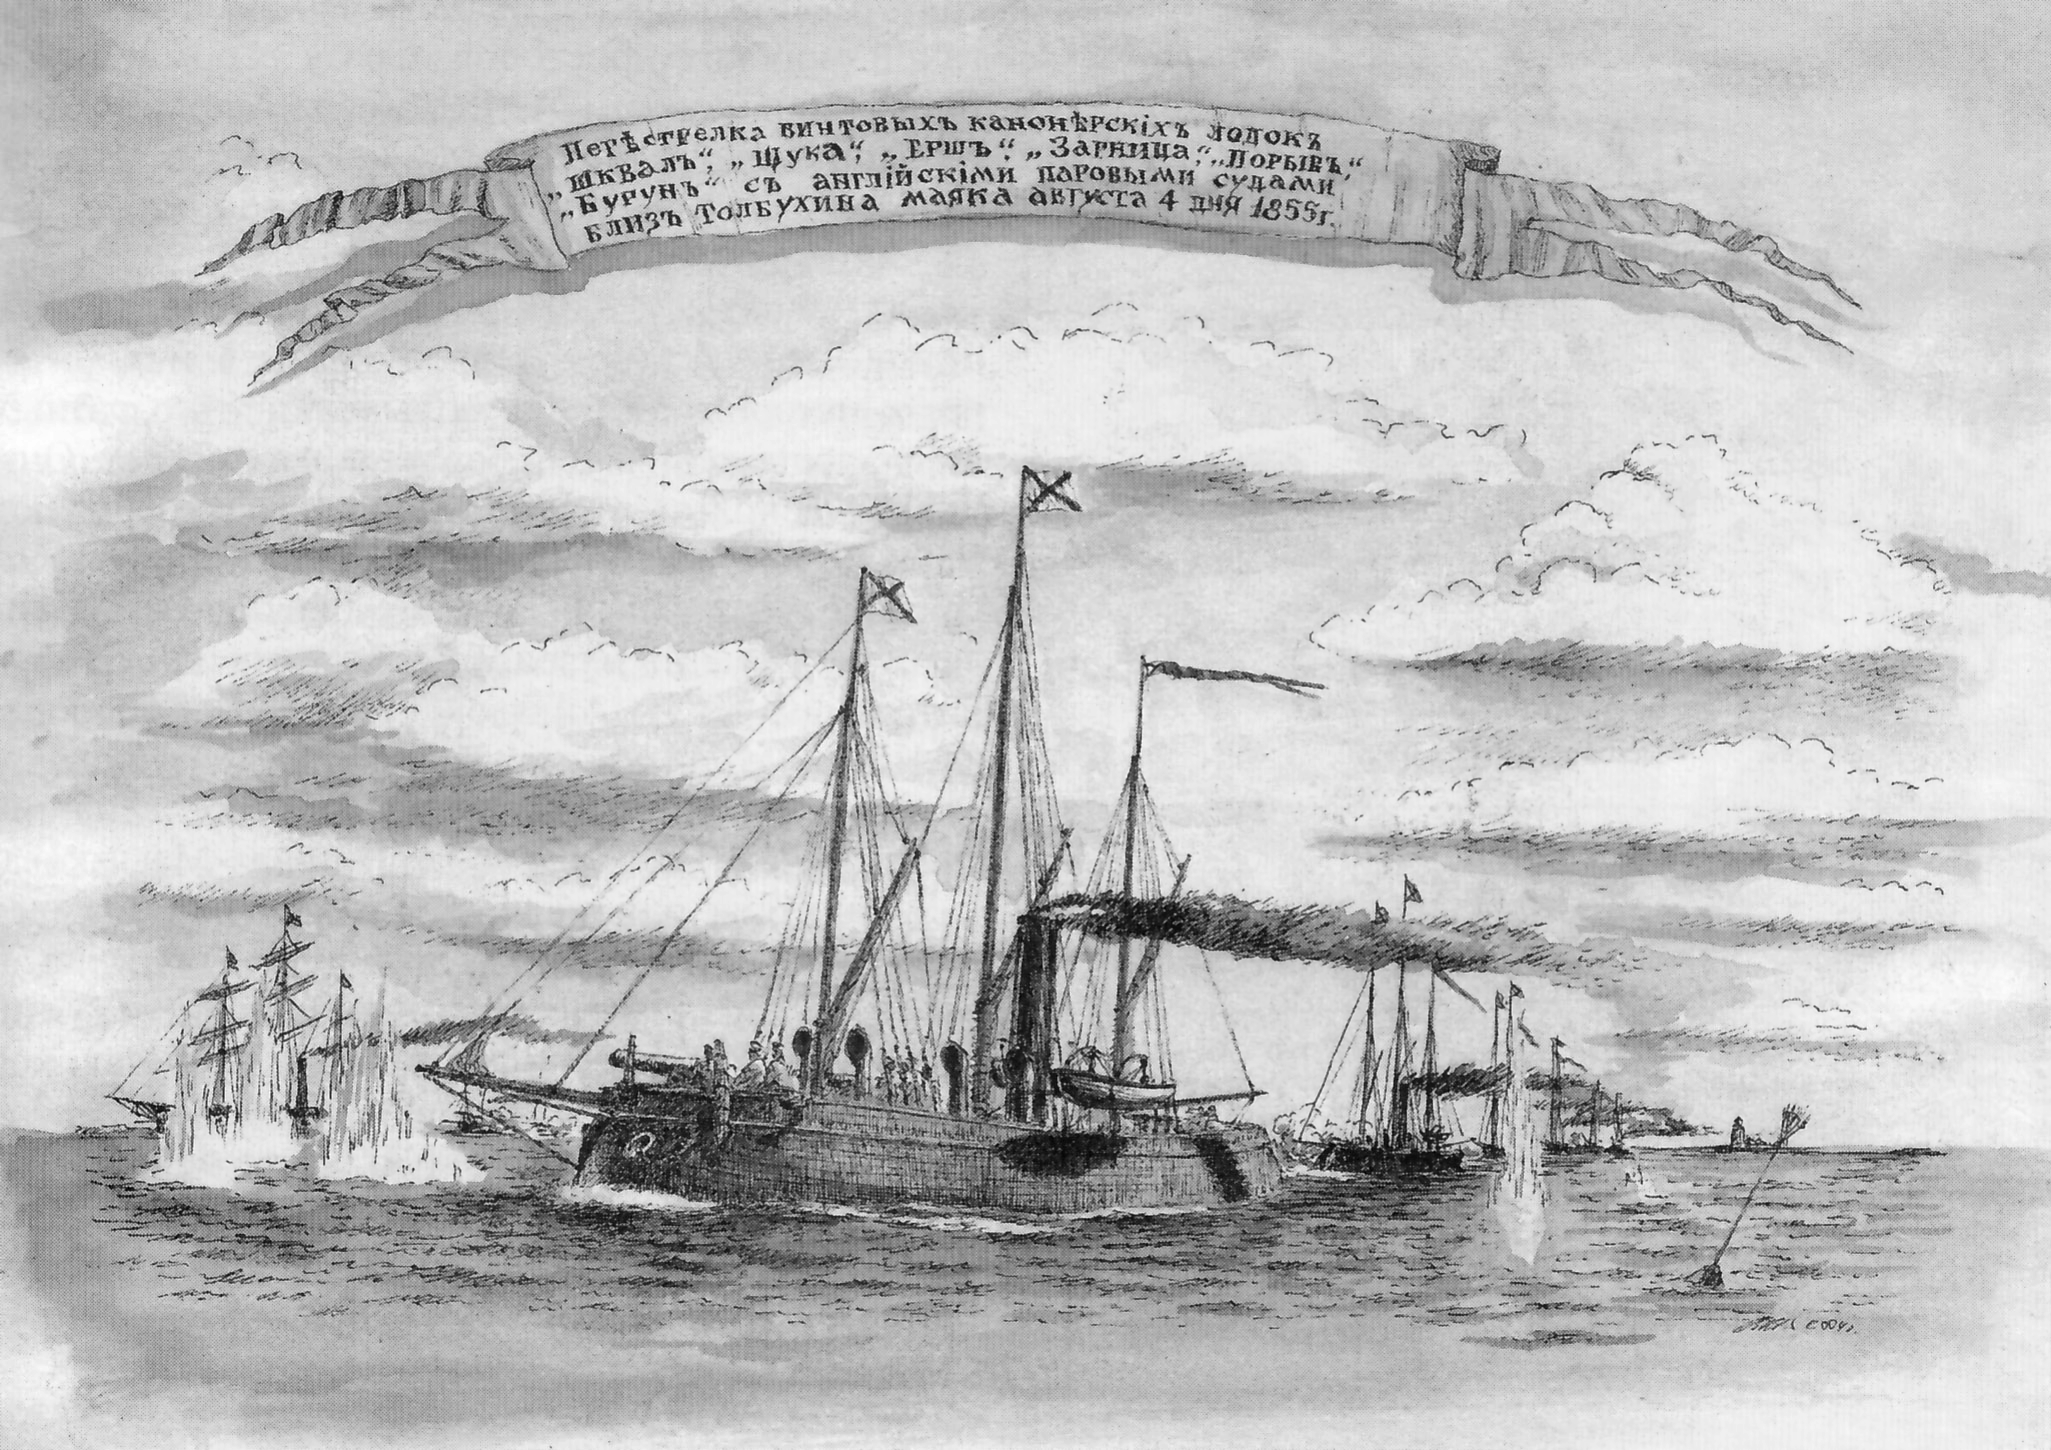 Перѣстрелка винтовыхъ канонѣрскіхъ лодокъ
„Шквалъ“, „Щука“, „Ершъ“, „Зарница“, „Порывъ“,
„Бурунъ“ съ англійскіми паровыми судами
близъ Толбухина маяка августа 4 дня 1855г.